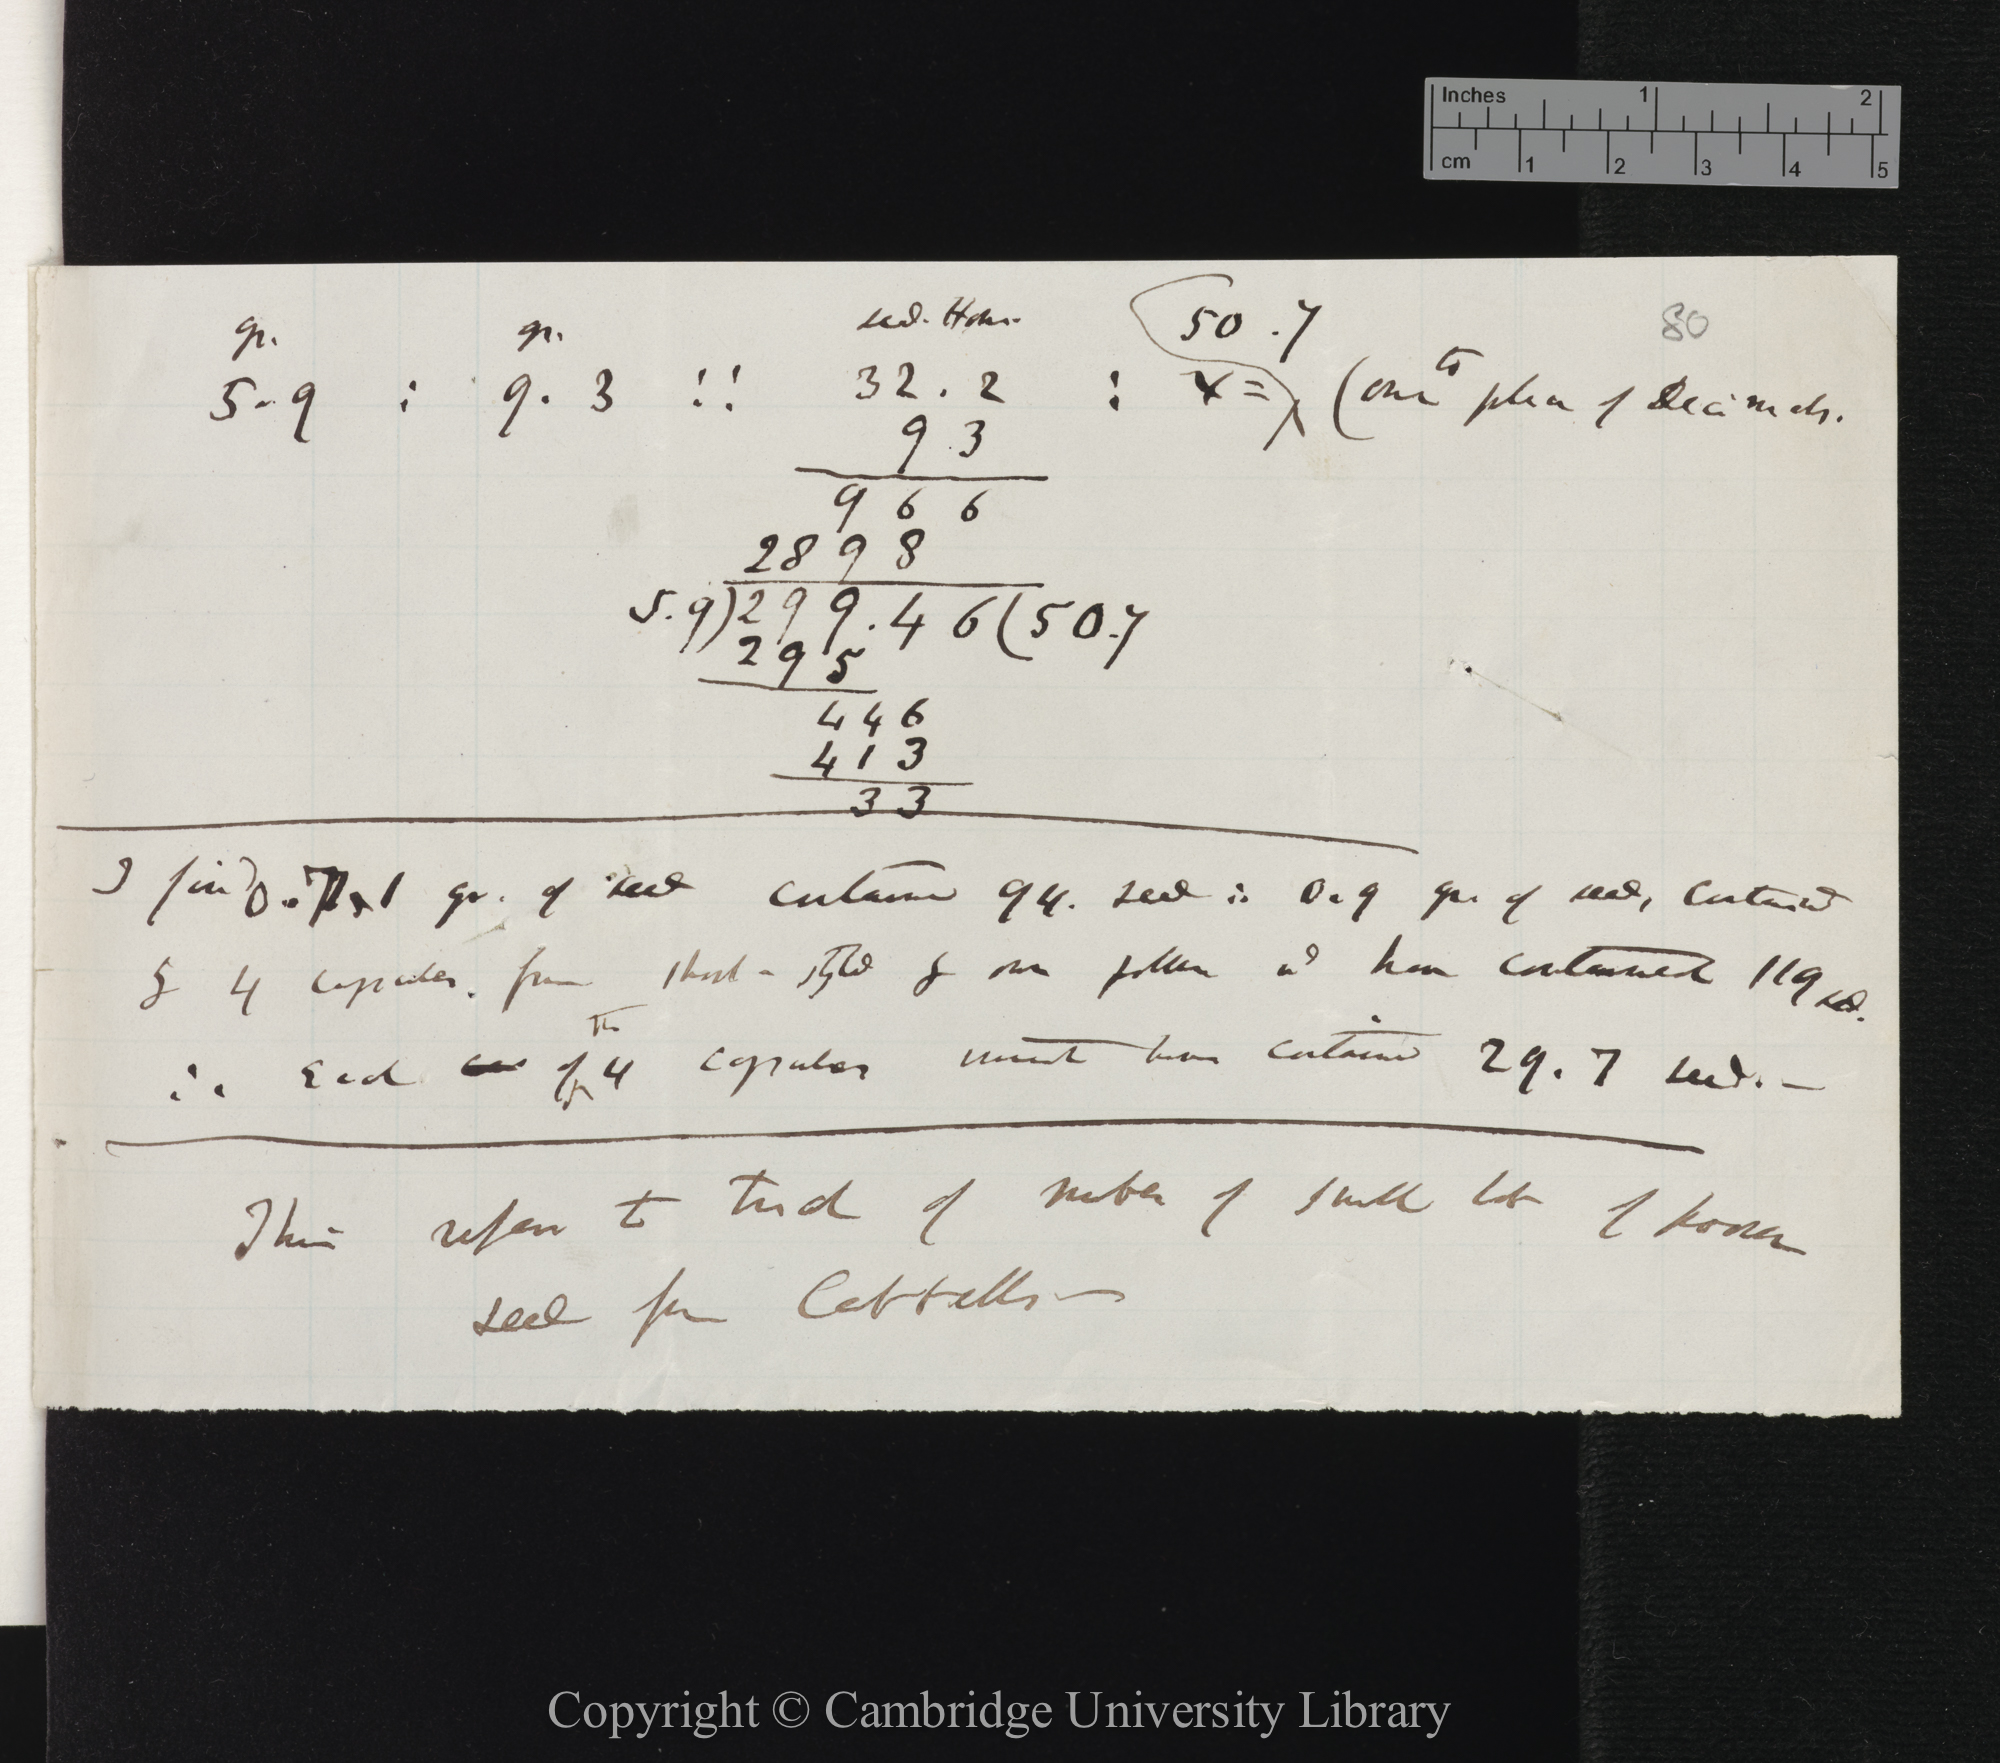 Inches 1 2
cm 1 2 3 4 5
80
gr. gr. seed. 50.7
5.9 : 9.3 :: 32.2 : x = (one place of Decimals.
9 3
9 6 6
28 9 8
5.9)299.46(50.7
295
446
413
33
I find 0.71 gr. of seed contained 94. seed ∴ 0.9 gr. of seed, contained
4 capsules. from short-styled own pollen wd have contained 119 sd.
∴ Each of the 4 capsules must have contained 29.7 seed. —
This refers to trial of number of small lot of
seed from Cattells —
Copyright © Cambridge University Library